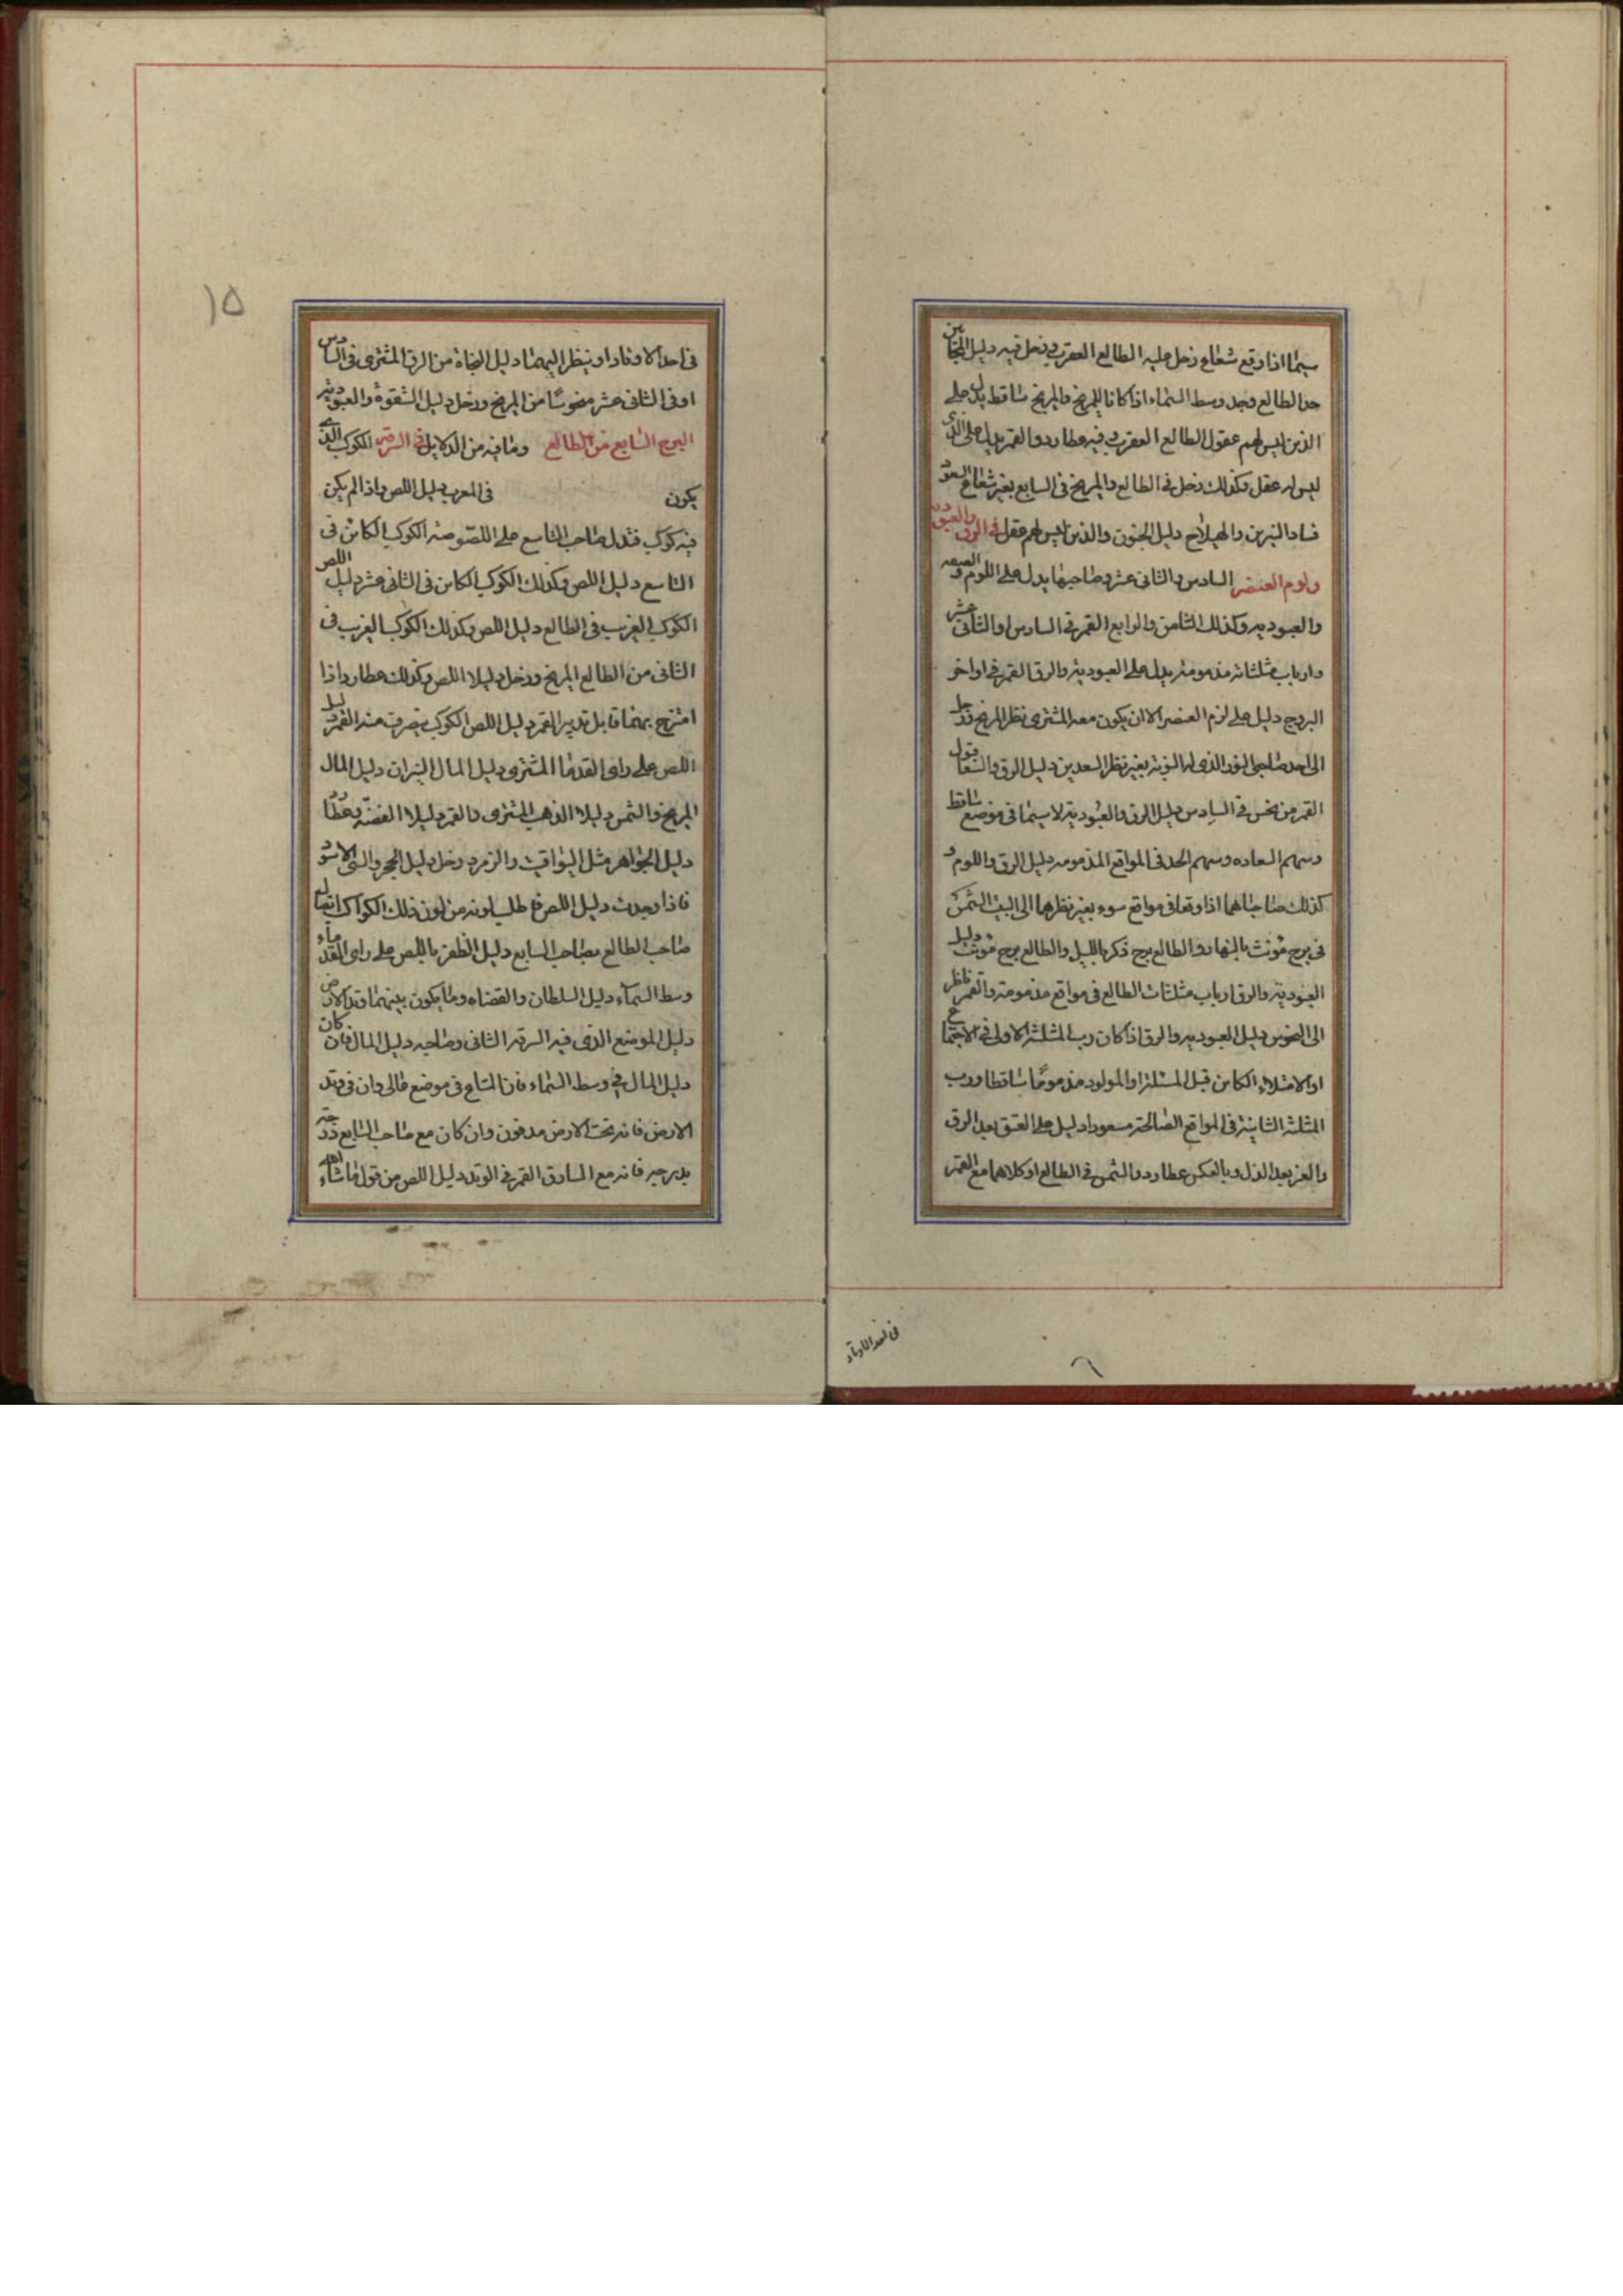 سيما اذا وقع شعاع زحل عليه الطالع العقرب وزحل فيه دليل المجانين
حد الطالع وحد وسط السماء اذا كانا للمريخ والمريخ ساقط يدل على
الذين ليس لهم عقول الطالع العقرب وفيه عطارد والقمر يدل على الذى
ليس له عقل وكذلك زحل فى الطالع والمريخ فى السابع بغير شعاع السعود
فساد النيرين والهيلاج دليل الجنون والذين ليس لهم عقل فى الرق والعبودية
ولوم العنصر السادس والثانى عشر وصاحبهما يدل على اللوم والضعه
والعبوديه وكذلك الثامن والرابع القمر فى السادس او الثانى عشر
وارباب مثلثاته مذمومة يدل على العبودية والرق القمر فى اواخر
البروج دليل على لزم العنصر الا ان يكون معه المشترى نظر المريخ وزحل
الى احد صاحبى النور الذى له النوبة بغير نظر السعدين دليل الرق والشقا قبول
القمر من نحس فى السادس دليل الرق والعبودية لا سيما فى موضع ساقط
وسهم السعاده وسهم الحد فى المواقع المذمومه دليل الرق واللوم و
كذلك صاحباهما اذا وقعا فى مواقع سوء بغير نظرهما الى البيت الشمس
فى برج مونث بالنهار والطالع برج ذكر بالليل والطالع برج مونث دليل
العبودية والرق ارباب مثلثات الطالع فى مواقع مذمومة والقمر ناظر
الى النحوس دليل العبوديه والرق اذا كان رب المثلثة الاولى فى الاجتماع
او الامتلاء الكاين قبل المسئلة او المولود مذموما ساقطا ورب
المثلثة الثانية فى المواقع الصالحة مسعودا دليل على العتق بعد الرق
والعز بعد الذل وبالعكس عطارد والشمس فى الطالع او كلاهما مع القمر
فى احد الاوتاد
١٥
فى احد الاوتاد او ينظر اليهما دليل النجاة من الرق المشترى فى السادس
او فى الثانى عشر منحوسا من المريخ وزحل دليل الشقوة والعبودية
البرج السابع من الطالع وما فيه من الدلايل فى السرقة الكوكب الذى
يكون فى المغرب دليل اللص واذا لم يكن
فيه كوكب فتدل صاحب التاسع على اللصوصة الكوكب الكائن فى
التاسع دليل اللص وكذلك الكوكب الكاين فى الثانى عشر دليل اللص
الكوكب الغريب فى الطالع دليل اللص وكذلك الكوكب الغريب فى
الثانى من الطالع المريخ وزحل دليلا اللص وكذلك عطارد اذا
امتزج بهما قابل تدبير القمر دليل اللص الكوكب ينصرف منه القمر دليل
اللص على راى القدما المشترى دليل المال النيران دليل المال
المريخ والشمس دليلا الذهب المشترى والقمر دليلا الفضة وعطارد
دليل الجواهر مثل اليواقيت والزمرد وزحل دليل الحجر والشى الاسود
فاذا وجدت دليل اللص فاطلب لونه من لون ذلك الكوكب اتصال
صاحب الطالع بصاحب السابع دليل الظفر باللص على راى القدماء
وسط السمآء دليل السلطان والقضاه وما يكون بينهما وتد الارض
دليل الموضع الذى فيه السرقه الثانى وصاحبه دليل المال فان كان
دليل المال فى وسط السماء فان المتاع فى موضع عالى وان فى وتد
الارض فانه تحت الارض مدفون وان كان مع صاحب السابع
فانه مع السارق القمر فى الوتد دليل اللص من قول ماشاء الله